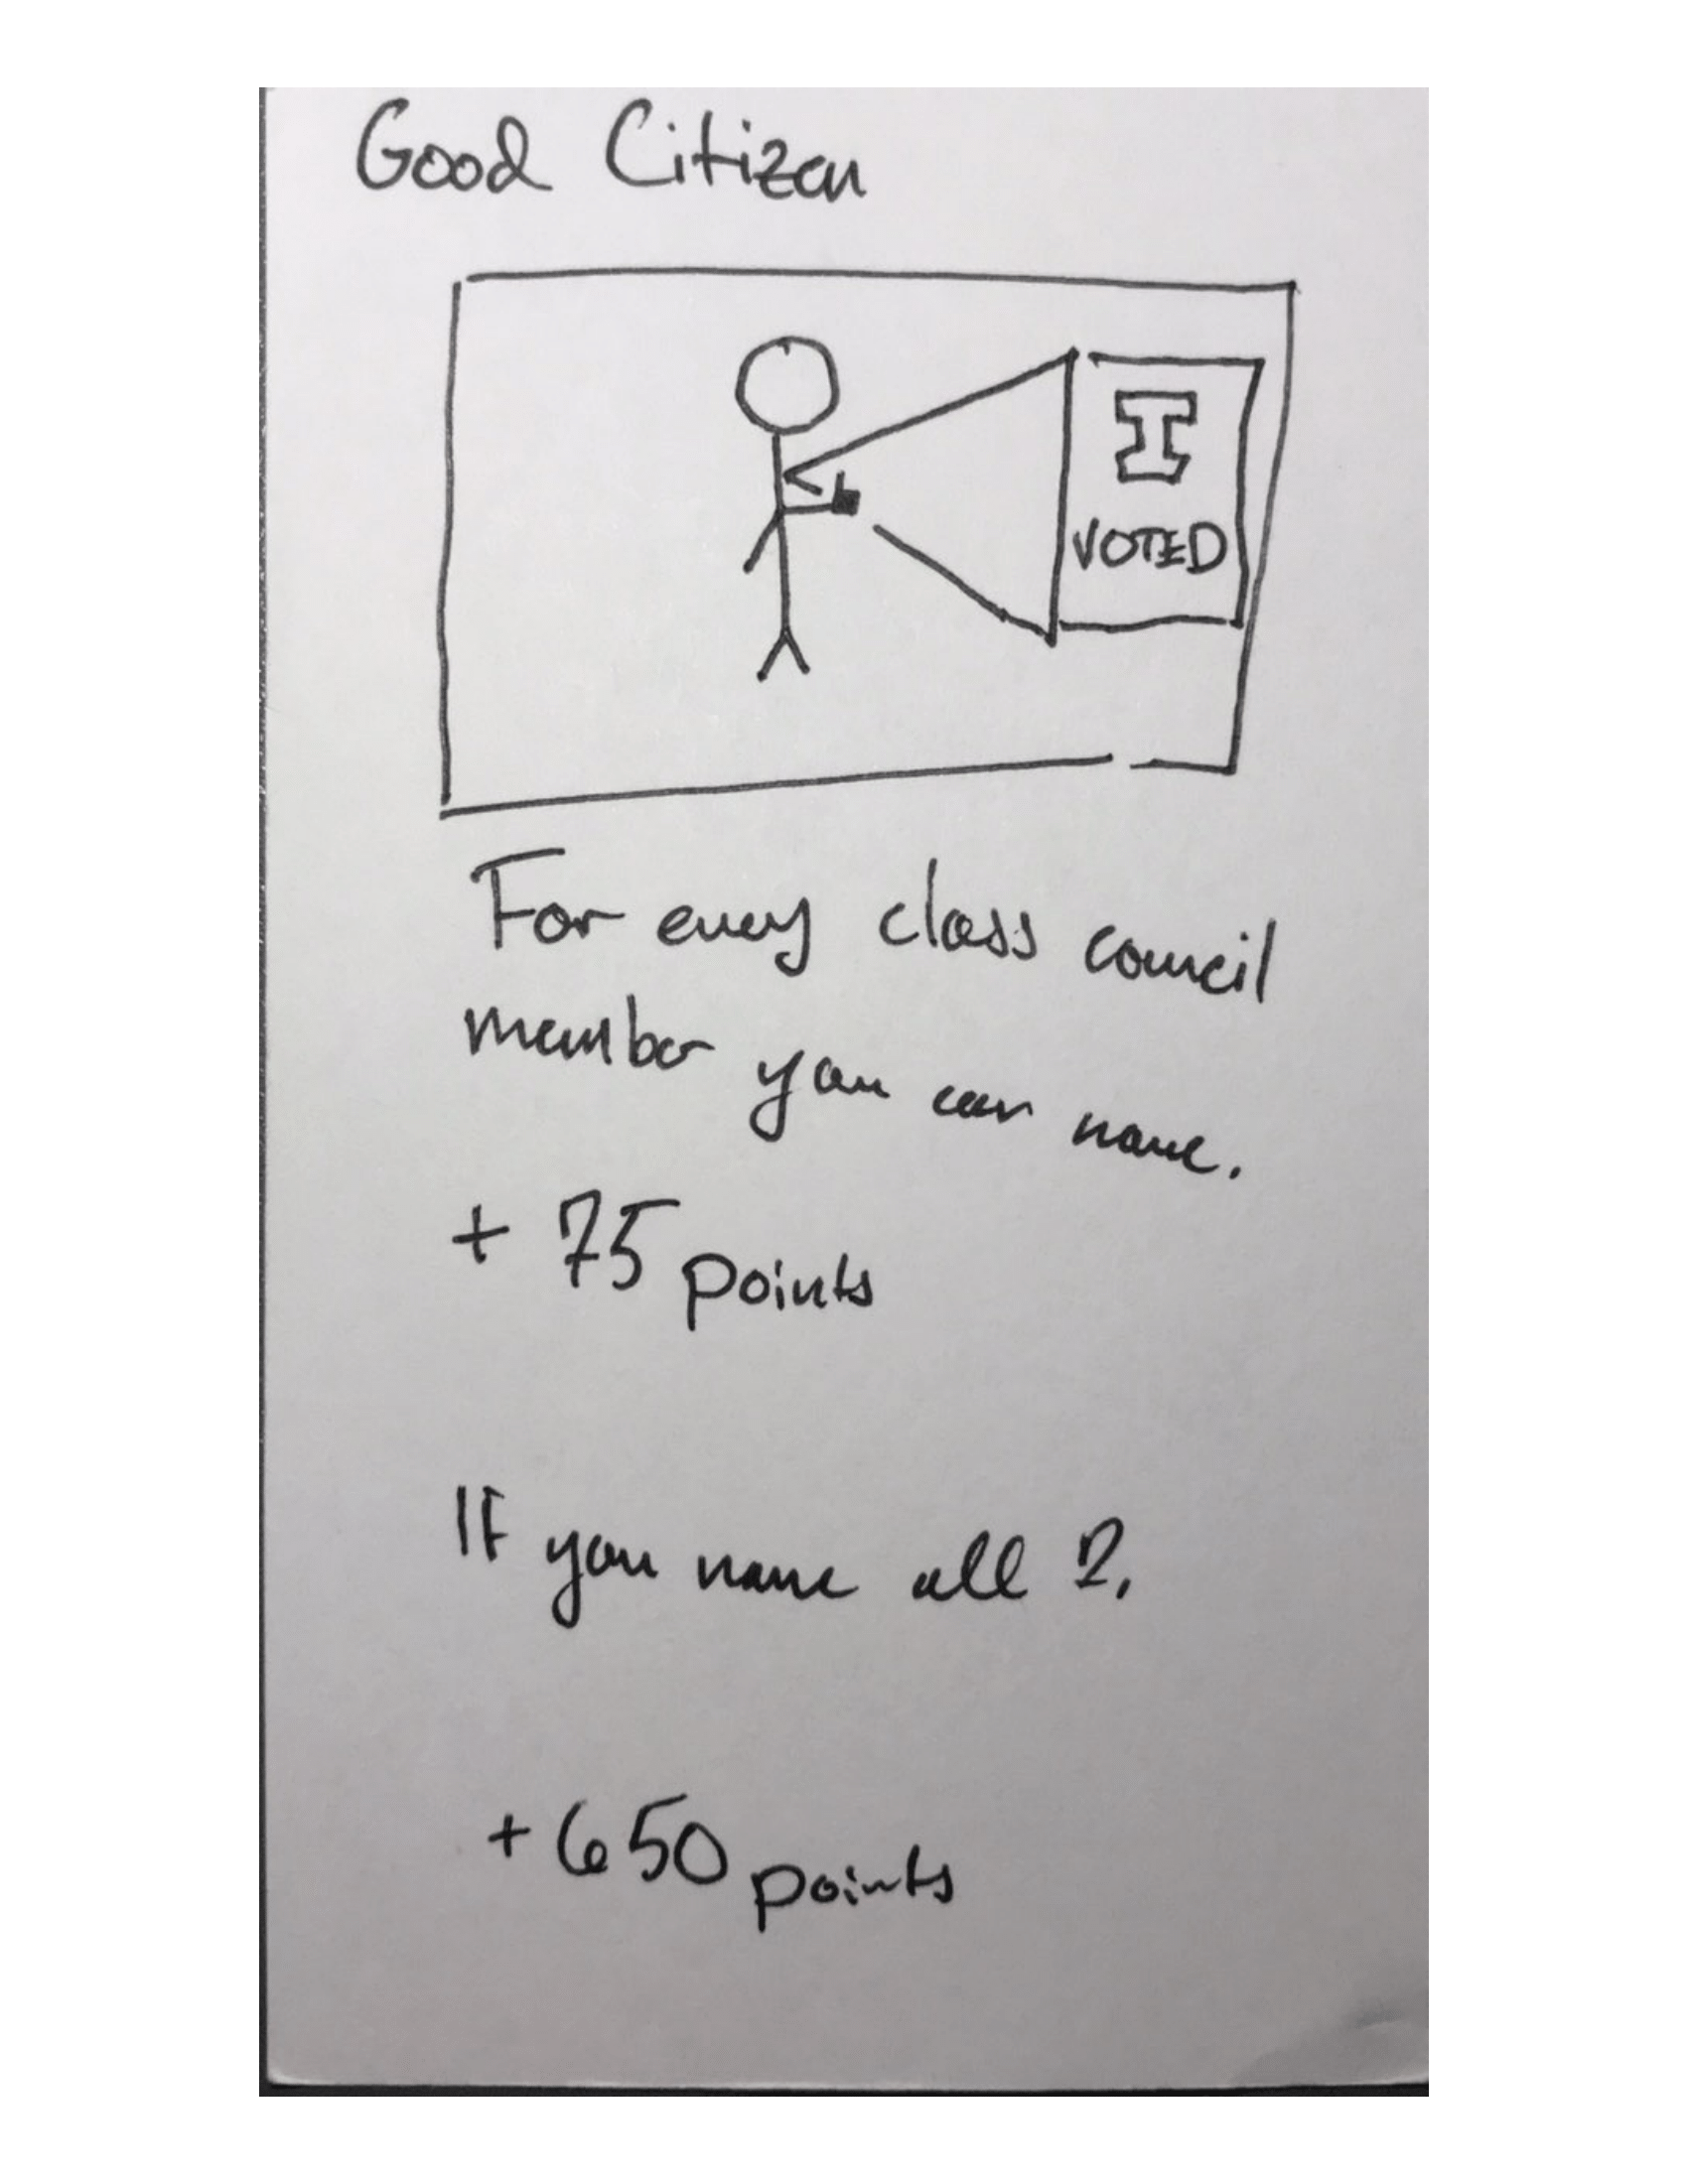 Good Citizen
I
VOTED
For every class council
member you can name.
+ 75 points
If you name all 2.
+650 points